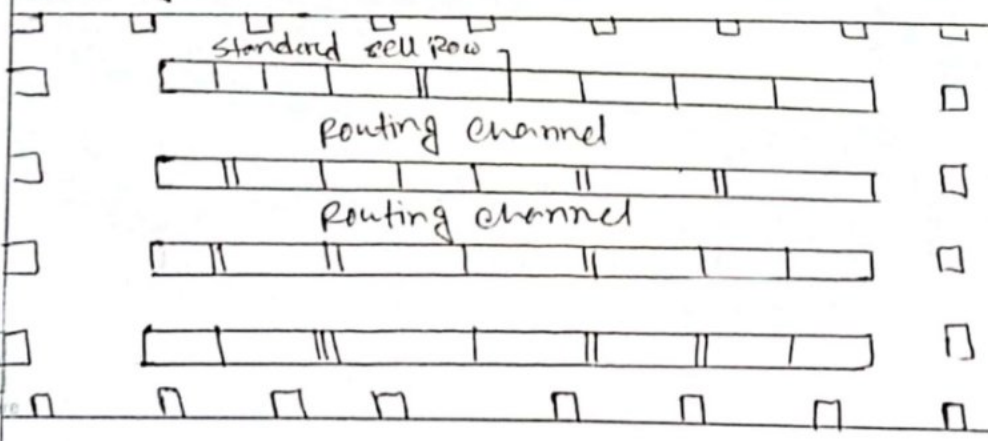 Standered cell Row
Routing channel
Routing channel